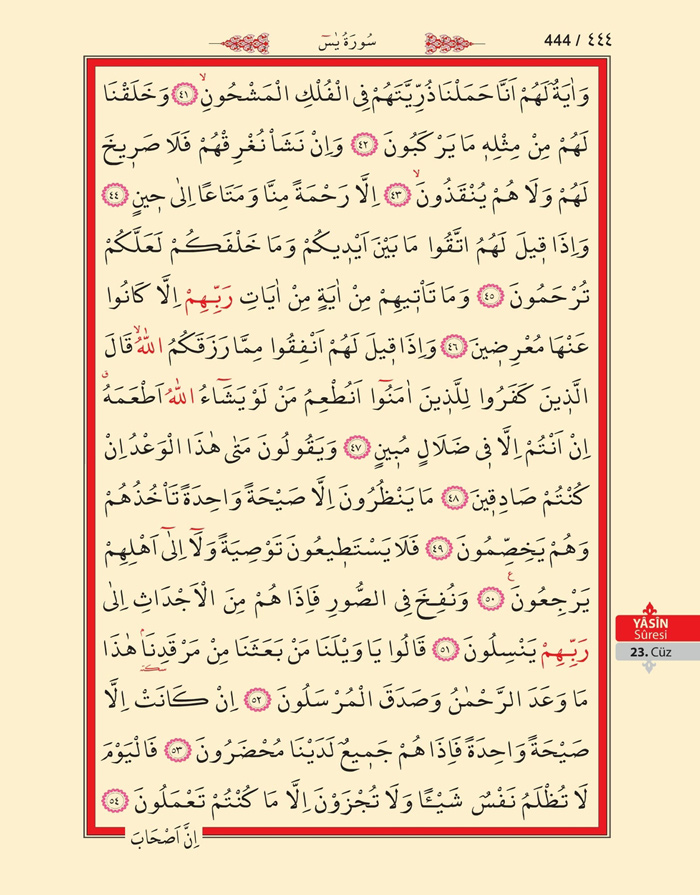 سُورَةُ يٰسٓ
444 / ٤٤٤
وَاٰيَةٌ لَهُمْ اَنَّا حَمَلْنَا ذُرِّيَّتَهُمْ فِى الْفُلْكِ الْمَشْحُونِۙ ﴿٤١﴾ وَخَلَقْنَا
لَهُمْ مِنْ مِثْلِه۪ مَا يَرْكَبُونَ ﴿٤٢﴾ وَاِنْ نَشَأْ نُغْرِقْهُمْ فَلَا صَر۪يخَ
لَهُمْ وَلَا هُمْ يُنْقَذُونَۙ ﴿٤٣﴾ اِلَّا رَحْمَةً مِنَّا وَمَتَاعًا اِلٰى ح۪ينٍ ﴿٤٤﴾
وَاِذَا ق۪يلَ لَهُمُ اتَّقُوا مَا بَيْنَ اَيْد۪يكُمْ وَمَا خَلْفَكُمْ لَعَلَّكُمْ
تُرْحَمُونَ ﴿٤٥﴾ وَمَا تَأْت۪يهِمْ مِنْ اٰيَةٍ مِنْ اٰيَاتِ رَبِّهِمْ اِلَّا كَانُوا
عَنْهَا مُعْرِض۪ينَ ﴿٤٦﴾ وَاِذَا ق۪يلَ لَهُمْ اَنْفِقُوا مِمَّا رَزَقَكُمُ اللّٰهُۙ قَالَ
الَّذ۪ينَ كَفَرُوا لِلَّذ۪ينَ اٰمَنُٓوا اَنُطْعِمُ مَنْ لَوْ يَشَٓاءُ اللّٰهُ اَطْعَمَهُۗ
اِنْ اَنْتُمْ اِلَّا ف۪ى ضَلَالٍ مُب۪ينٍ ﴿٤٧﴾ وَيَقُولُونَ مَتٰى هٰذَا الْوَعْدُ اِنْ
كُنْتُمْ صَادِق۪ينَ ﴿٤٨﴾ مَا يَنْظُرُونَ اِلَّا صَيْحَةً وَاحِدَةً تَأْخُذُهُمْ
وَهُمْ يَخِصِّمُونَ ﴿٤٩﴾ فَلَا يَسْتَط۪يعُونَ تَوْصِيَةً وَلَٓا اِلٰٓى اَهْلِهِمْ
يَرْجِعُونَ۟ ﴿٥٠﴾ وَنُفِخَ فِى الصُّورِ فَاِذَا هُمْ مِنَ الْاَجْدَاثِ اِلٰى
رَبِّهِمْ يَنْسِلُونَ ﴿٥١﴾ قَالُوا يَا وَيْلَنَا مَنْ بَعَثَنَا مِنْ مَرْقَدِنَاۢ هٰذَا
مَا وَعَدَ الرَّحْمٰنُ وَصَدَقَ الْمُرْسَلُونَ ﴿٥٢﴾ اِنْ كَانَتْ اِلَّا
صَيْحَةً وَاحِدَةً فَاِذَا هُمْ جَم۪يعٌ لَدَيْنَا مُحْضَرُونَ ﴿٥٣﴾ فَالْيَوْمَ
لَا تُظْلَمُ نَفْسٌ شَيْـًٔا وَلَا تُجْزَوْنَ اِلَّا مَا كُنْتُمْ تَعْمَلُونَ ﴿٥٤﴾
اِنَّ اَصْحَابَ
YÂSÎN
Sûresi
23. Cüz